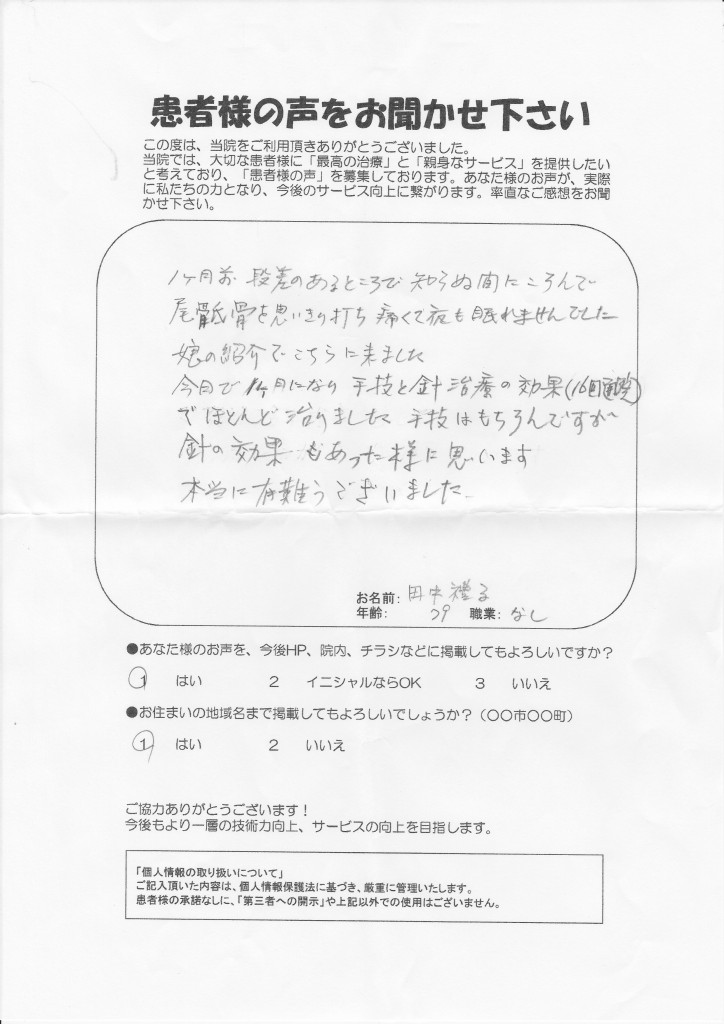 患者様の声をお聞かせ下さい
この度は、当院をご利用頂きありがとうございました。
当院では、大切な患者様に「最高の治療」と「親身なサービス」を提供したい
と考えており、「患者様の声」を募集しております。あなた様のお声が、実際
に私たちの力となり、今後のサービス向上に繋がります。率直なご感想をお聞
かせ下さい。
1ヶ月前 段差のあるところで 知らぬ間にころんで
尾骶骨を思いきり打ち 痛くて夜も眠れませんでした
娘の紹介でこちらに来ました
今日で1ヶ月になり 手技と針治療の効果(16回
でほとんど治りました 手技はもちろんですが
針の効果もあった様に思います
本当に有難うございました
お名前: 田中
年齢: 79 職業: なし
●あなた様のお声を、今後HP、院内、チラシなどに掲載してもよろしいですか?
1 はい 2 イニシャルならOK 3 いいえ
●お住まいの地域名まで掲載してもよろしいでしょうか?(〇〇市〇〇町)
1 はい 2 いいえ
ご協力ありがとうございます!
今後もより一層の技術力向上、サービスの向上を目指します。
「個人情報の取り扱いについて」
ご記入頂いた内容は、個人情報保護法に基づき、厳重に管理いたします。
患者様の承諾なしに、「第三者への開示」や上記以外での使用はございません。